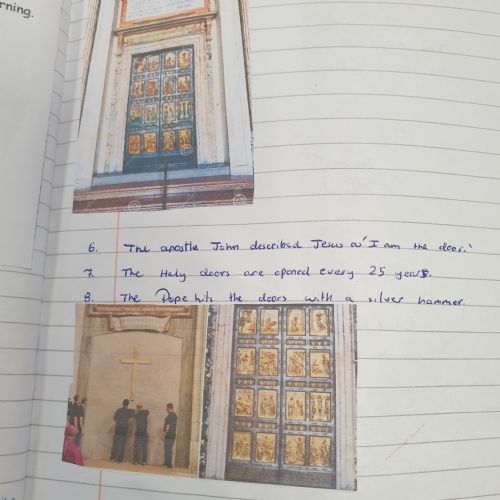 rning.
6. The apostle John described Jesus as 'I am the door.'
7. The Holy doors are opened every 25 years.
8. The Pope hits the doors with a silver hammer.